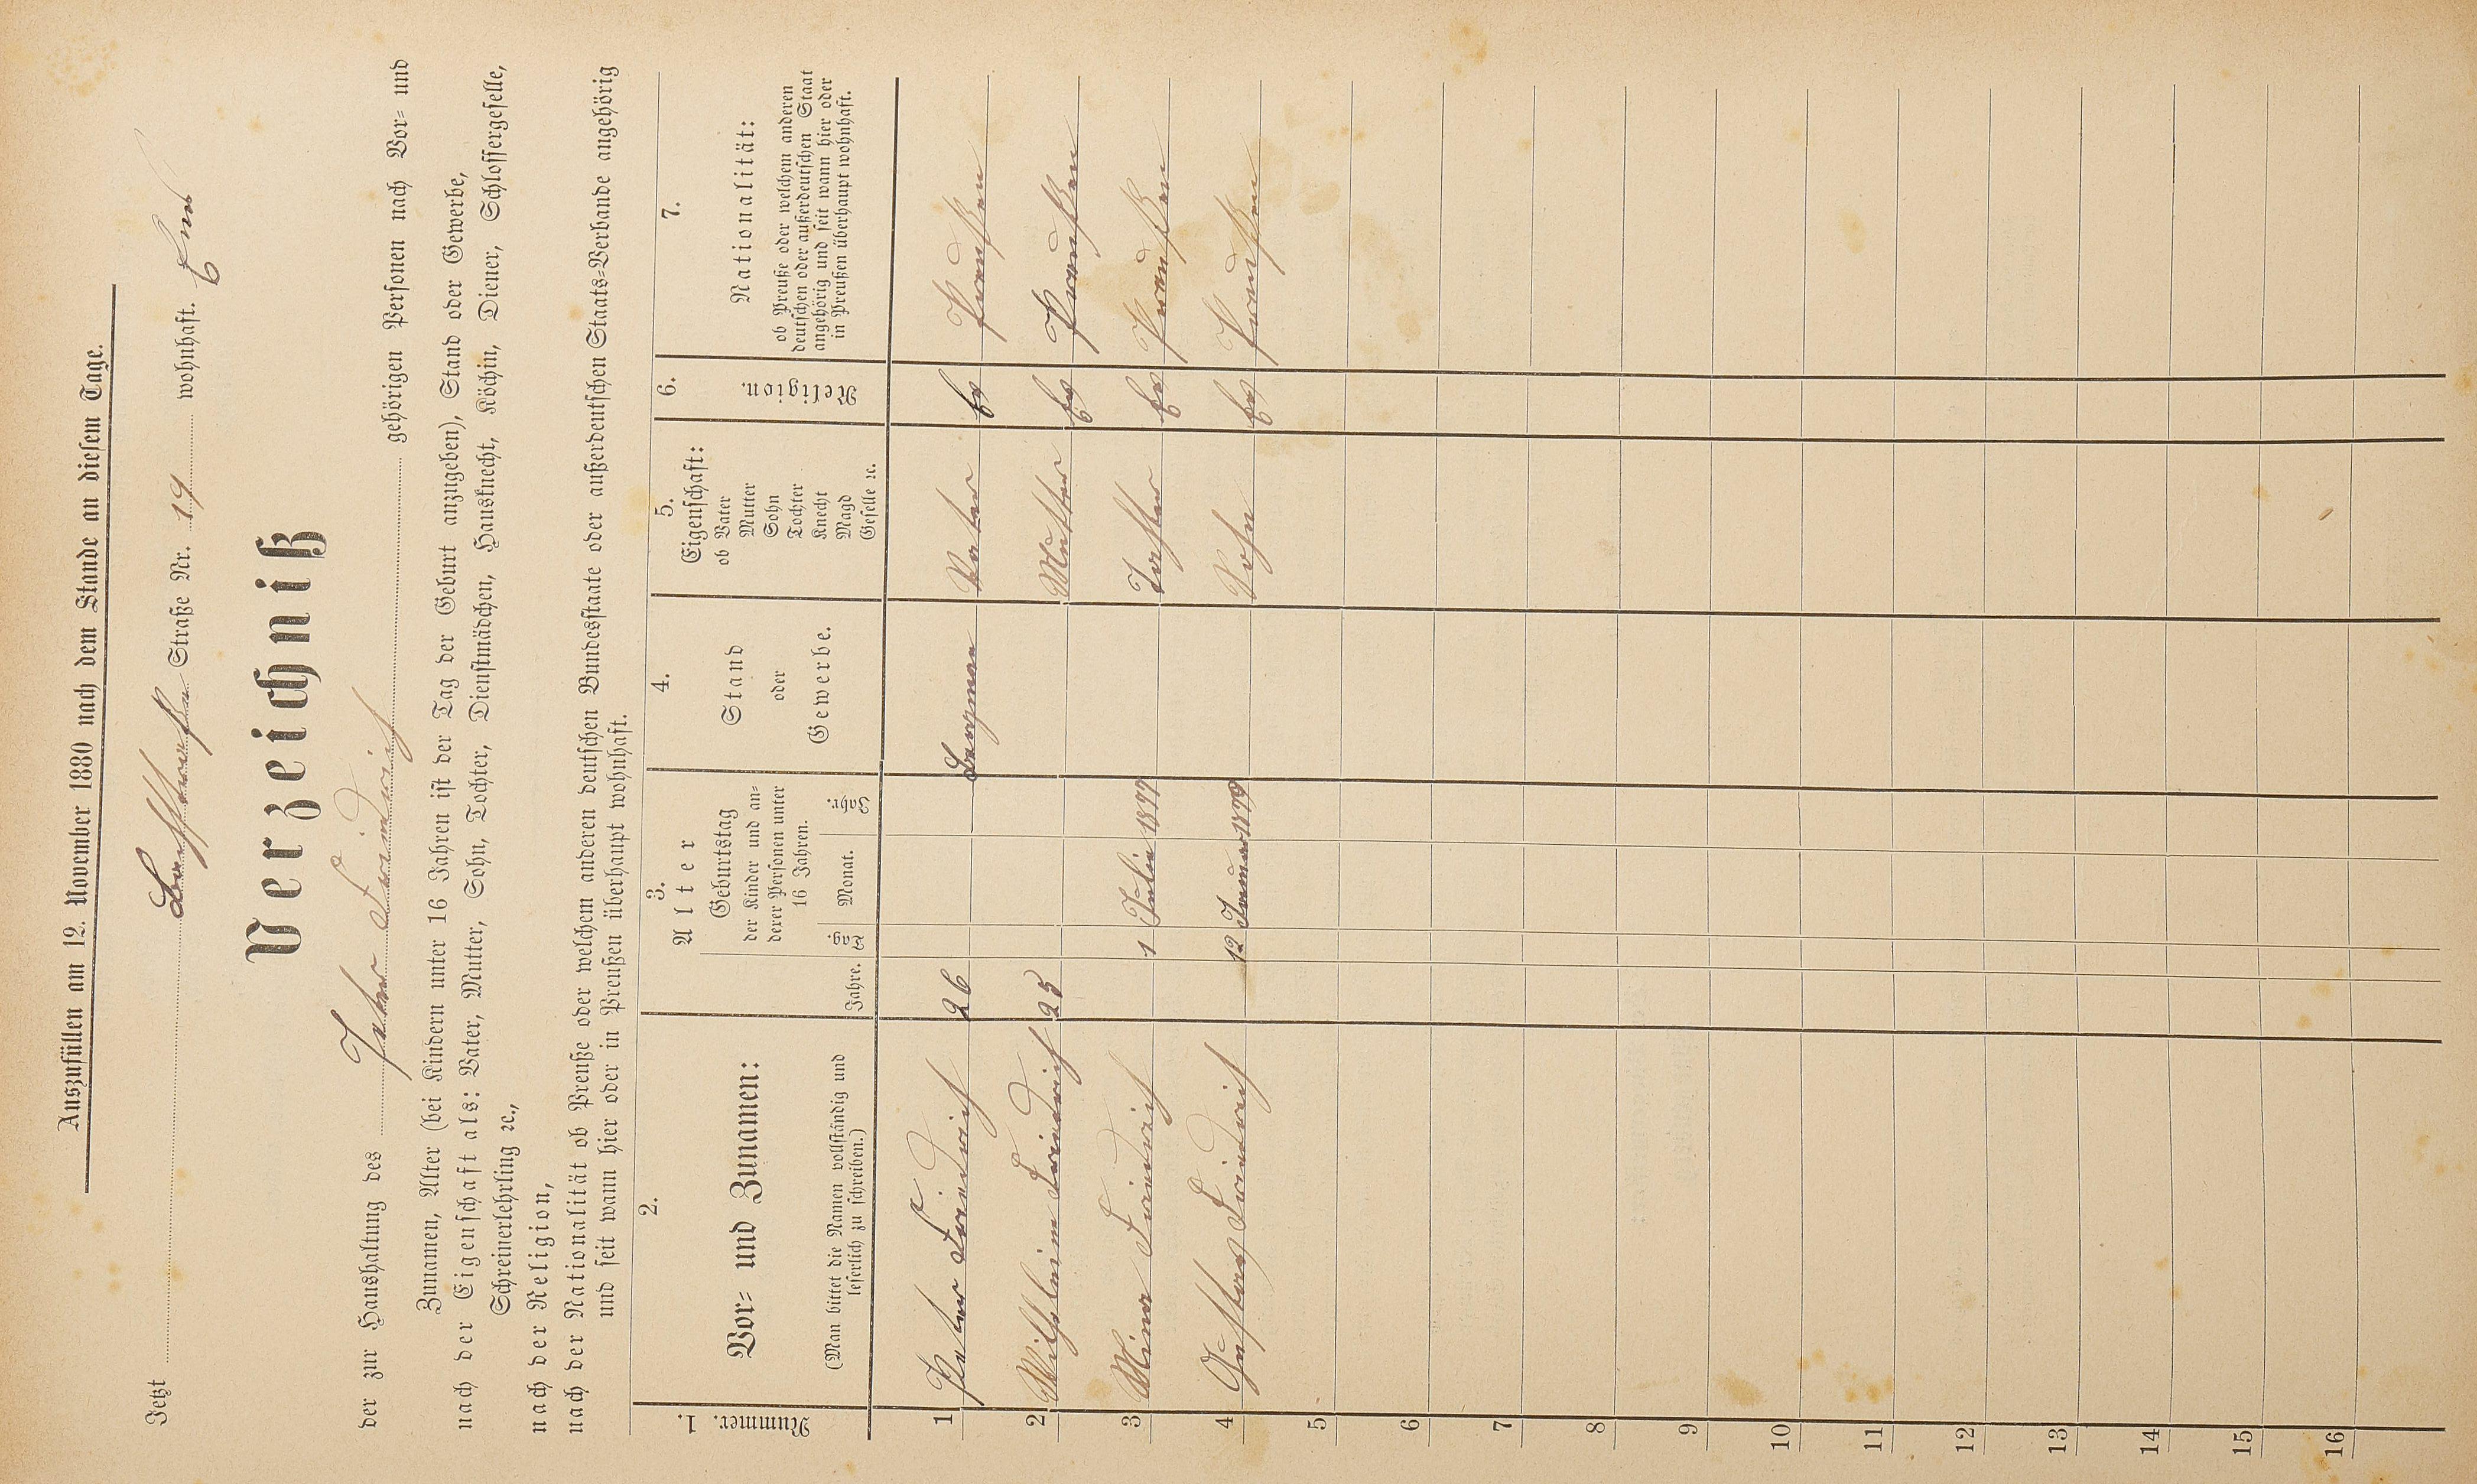 Auszufüllen am 12. November 1880 nach dem Stande an diesem Tage.
Jetzt Bachstraßen Straße Nr. 19 wohnhaft. Ems
Verzeichniß
der zur Haushaltung des Peter Friedrich gehörigen Personen nach Vor- und
Zunamen, Alter (bei Kindern unter 16 Jahren ist der Tag der Geburt anzugeben), Stand oder Gewerbe,
nach der Eigenschaft als: Vater, Mutter, Sohn, Tochter, Dienstmädchen, Hausknecht, Köchin, Diener, Schlossergeselle,
Schreinerlehrling ꝛc.,
nach der Religion,
nach der Nationalität ob Preuße oder welchem anderen deutschen Bundesstaate oder außerdeutschen Staats-Verbande angehörig
und seit wann hier oder in Preußen überhaupt wohnhaft.
1. Nummer.
2. Vor- und Zunamen:
(Man bittet die Namen vollständig und
leserlich zu schreiben.)
3. Alter
Jahre.
Geburtstag
der Kinder und an-
derer Personen unter
16 Jahren.
Tag. Monat. Jahr.
4. Stand
oder
Gewerbe.
5. Eigenschaft:
ob Vater
Mutter
Sohn
Tochter
Knecht
Magd
Geselle ꝛc.
6. Religion.
7. Nationalität:
ob Preuße oder welchem anderen
deutschen oder außerdeutschen Staat
angehörig und seit wann hier oder
in Preußen überhaupt wohnhaft.
1 Peter Friedrich 26 Bergman Vater Ev Preußen
2 Wilhelmine Friedrich 25 Mutter Ev Preußen
3 Mina Friedrich 1 Julie 1877 Tochter Ev Preußen
4 Gustav Friedrich 12 Januar 1879 Sohn Ev Preußen
5
6
7
8
9
10
11
12
13
14
15
16